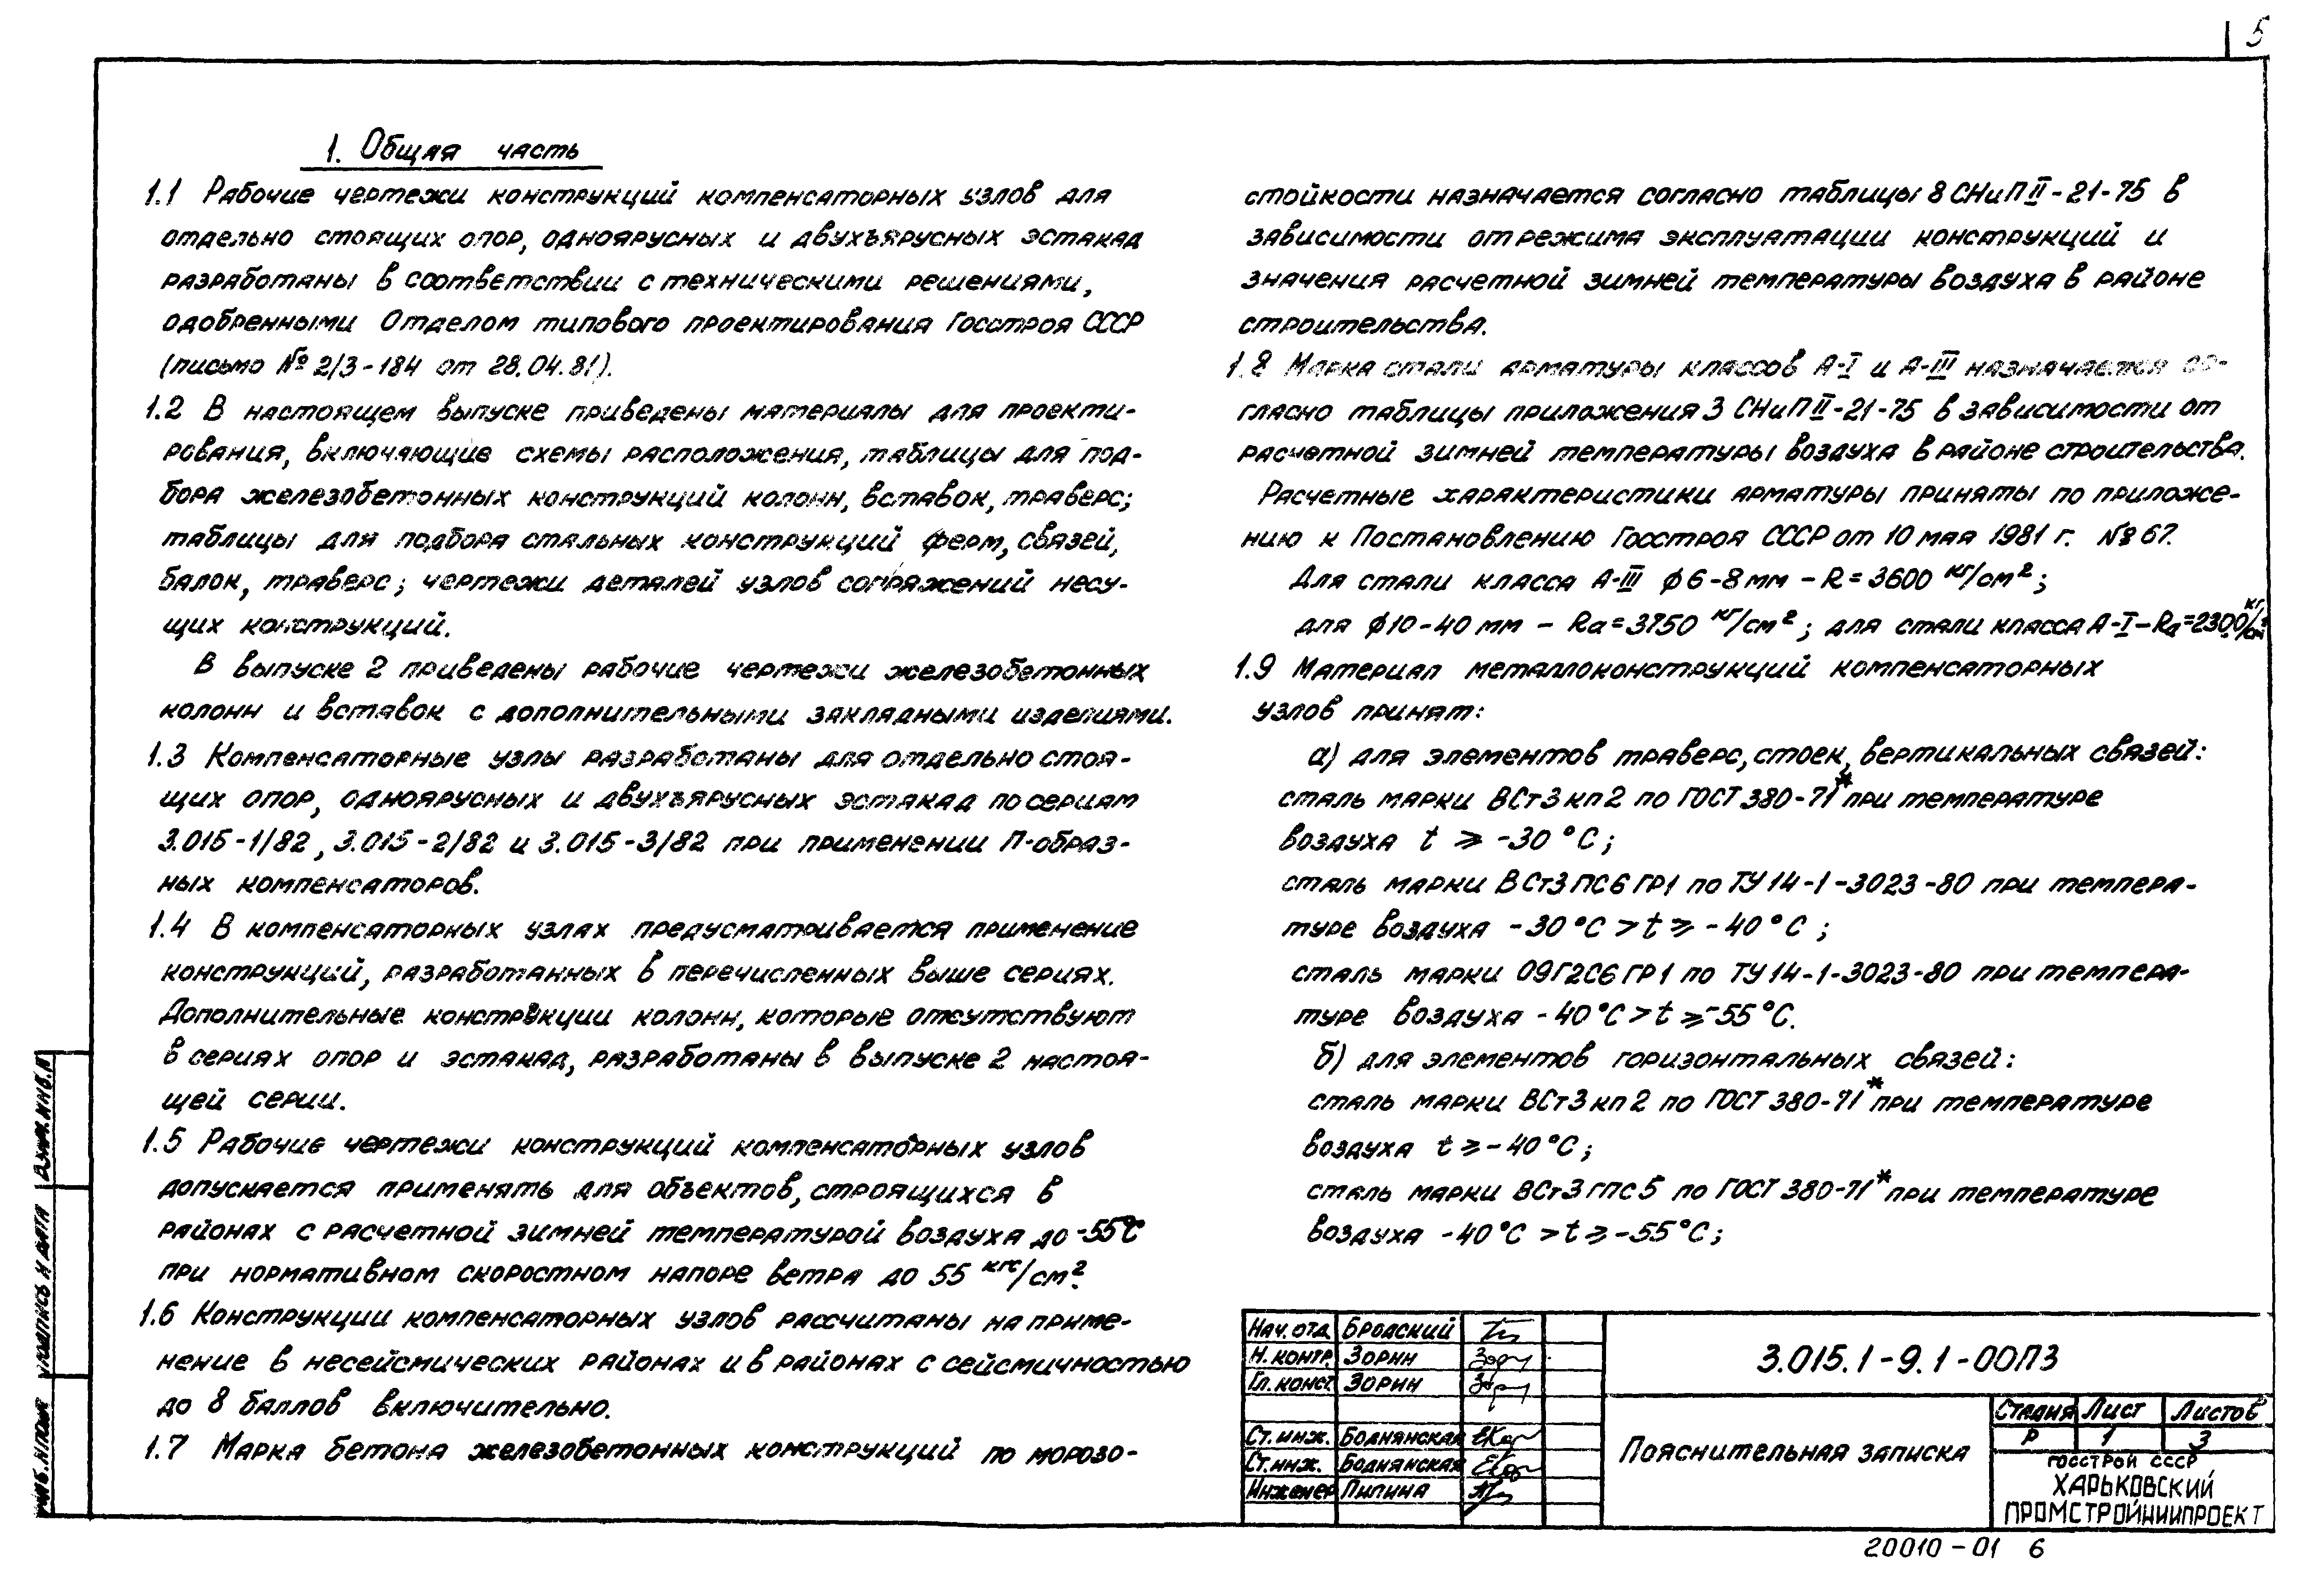 5
1. Общая часть
1.1 Рабочие чертежи конструкций компенсаторных узлов для
отдельно стоящих опор, одноярусных и двухъярусных эстакад
разработаны в соответствии с техническими решениями,
одобренными Отделом типового проектирования Госстроя СССР
(письмо № 2/3-184 от 28.04.81).
1.2 В настоящем выпуске приведены материалы для проекти-
рования, включающие схемы расположения, таблицы для под-
бора железобетонных конструкций колонн, вставок, траверс;
таблицы для подбора стальных конструкций ферм, связей,
балок, траверс; чертежи деталей узлов сопряжений несу-
щих конструкций.
В выпуске 2 приведены рабочие чертежи железобетонных
колонн и вставок с дополнительными закладными изделиями.
1.3 Компенсаторные узлы разработаны для отдельно стоя-
щих опор, одноярусных и двухъярусных эстакад по сериям
3.015-1/82, 3.015-2/82 и 3.015-3/82 при применении П-образ-
ных компенсаторов.
1.4 В компенсаторных узлах предусматривается применение
конструкций, разработанных в перечисленных выше сериях.
Дополнительные конструкции колонн, которые отсутствуют
в сериях опор и эстакад, разработаны в выпуске 2 настоя-
щей серии.
1.5 Рабочие чертежи конструкций компенсаторных узлов
допускается применять для объектов, строящихся в
районах с расчетной зимней температурой воздуха до -55°С
при нормативном скоростном напоре ветра до 55 кгс/см².
1.6 Конструкции компенсаторных узлов рассчитаны на приме-
нение в несейсмических районах и в районах с сейсмичностью
до 8 баллов включительно.
1.7 Марка бетона железобетонных конструкций по морозо-
стойкости назначается согласно таблицы 8 СНиП II-21-75 в
зависимости от режима эксплуатации конструкций и
значения расчетной зимней температуры воздуха в районе
строительства.
1.8 Марка стали арматуры классов А-I и А-III назначается со-
гласно таблицы приложения 3 СНиП II-21-75 в зависимости от
расчетной зимней температуры воздуха в районе строительства.
Расчетные характеристики арматуры приняты по приложе-
нию к Постановлению Госстроя СССР от 10 мая 1981 г. № 67.
Для стали класса А-III ϕ 6-8 мм - R = 3600 кг/см²;
для ϕ 10-40 мм - Rа = 3750 кг/см²; для стали класса А-I - Rа = 2300 кг/см²
1.9 Материал металлоконструкций компенсаторных
узлов принят:
а) для элементов траверс, стоек, вертикальных связей:
сталь марки ВСт3кп2 по ГОСТ 380-71* при температуре
воздуха t ⩾ -30°С;
сталь марки ВСт3ПС6 ГР1 по ТУ 14-1-3023-80 при темпера-
туре воздуха -30°С > t ⩾ -40°С;
сталь марки 09Г2С6 ГР1 по ТУ 14-1-3023-80 при темпера-
туре воздуха -40°С > t ⩾ -55°С.
б) для элементов горизонтальных связей:
сталь марки ВСт3кп2 по ГОСТ 380-71* при температуре
воздуха t ⩾ -40°С;
сталь марки ВСт3Гпс5 по ГОСТ 380-71* при температуре
воздуха -40°С > t ⩾ -55°С;
Нач. отд. Бродский
Н. контр. Зорин
Гл. конст. Зорин
Ст. инж. Боднянская
Ст. инж. Боднянская
Инженер Пипина
3.015.1-9.1-00ПЗ
Пояснительная записка
Стадия Лист Листов
Р 1 3
ГОССТРОЙ СССР
ХАРЬКОВСКИЙ
ПРОМСТРОЙНИИПРОЕКТ
20010-01 6
Взам. инв. №
Подпись и дата
Инв. № подл.